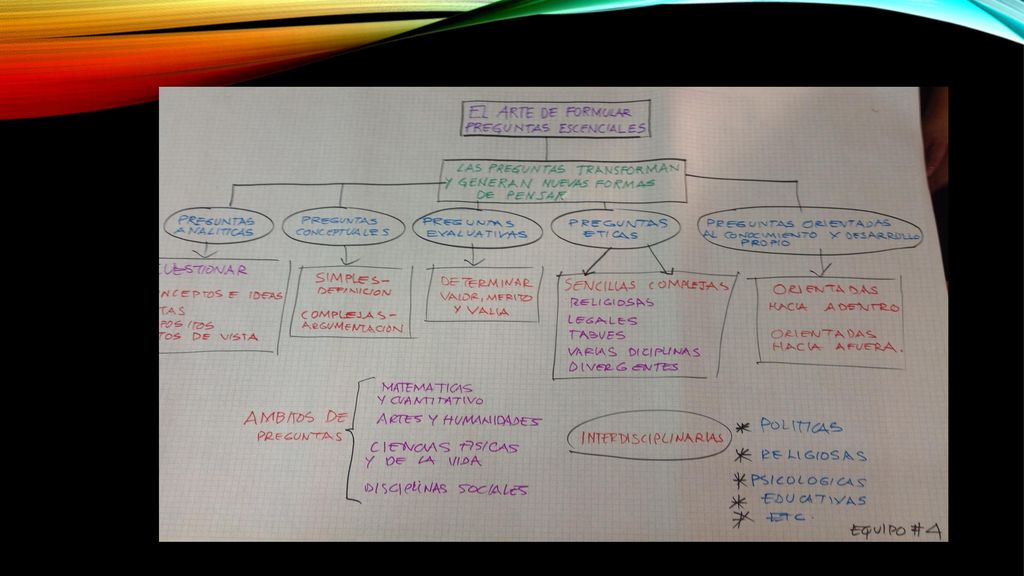 EL ARTE DE FORMULAR
PREGUNTAS ESCENCIALES
LAS PREGUNTAS TRANSFORMAN
Y GENERAN NUEVAS FORMAS
DE PENSAR
PREGUNTAS
ANALITICAS
PREGUNTAS
CONCEPTUALES
PREGUNTAS
EVALUATIVAS
PREGUNTAS
ETICAS
PREGUNTAS ORIENTADAS
AL CONOCIMIENTO Y DESARROLLO
PROPIO
CUESTIONAR
NCEPTOS E IDEAS
TAS
POSITOS
TOS DE VISTA
SIMPLES-
DEFINICION
COMPLEJAS-
ARGUMENTACION
DETERMINAR
VALOR, MERITO
Y VALIA
SENCILLAS COMPLEJAS
RELIGIOSAS
LEGALES
TABUES
VARIAS DICIPLINAS
DIVERGENTES
ORIENTADAS
HACIA ADENTRO
ORIENTADAS
HACIA AFUERA.
AMBITOS DE
PREGUNTAS
MATEMATICAS
Y CUANTITATIVO
ARTES Y HUMANIDADES
CIENCIAS FISICAS
Y DE LA VIDA
DISCIPLINAS SOCIALES
INTERDISCIPLINARIAS
* POLITICAS
* RELIGIOSAS
* PSICOLOGICAS
* EDUCATIVAS
* ETC.
EQUIPO #4